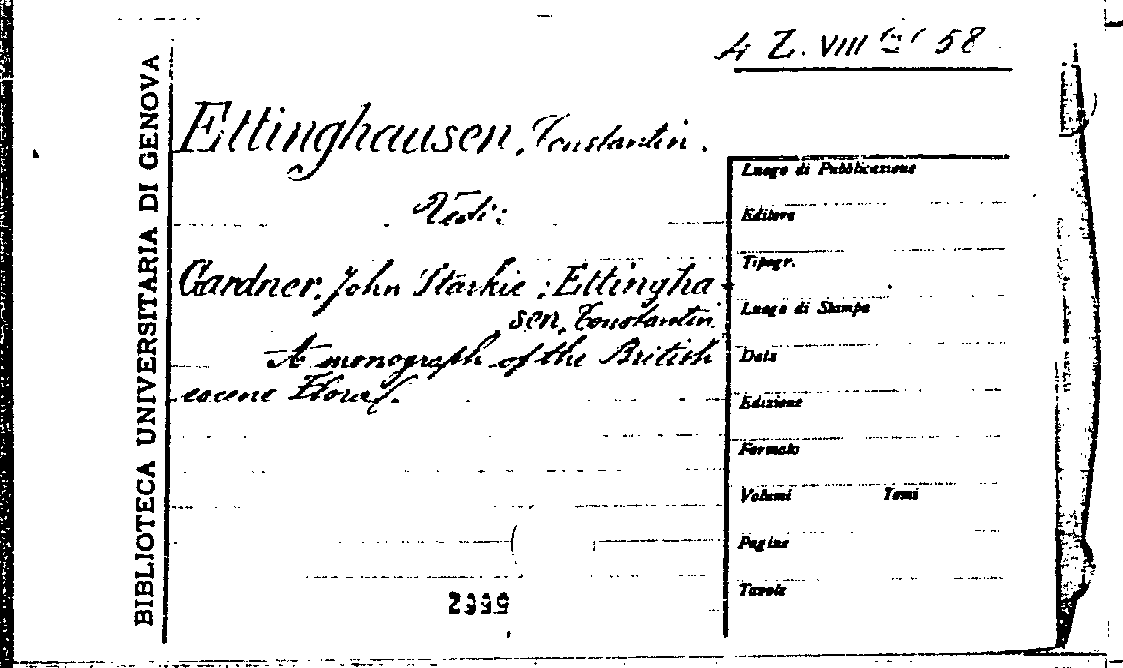 4 Z. VIII 58
BIBLIOTECA UNIVERSITARIA DI GENOVA
Ettinghausen, Constantin.
Vedi:
Gardner, John Starkie ; Ettingha
sen, Constantin
A monograph of the British
eocene Flora.
2999
Luogo di Pubblicazione
Editore
Tipogr.
Luogo di Stampa
Data
Edizione
Formato
Volumi Tomi
Pagine
Tavole